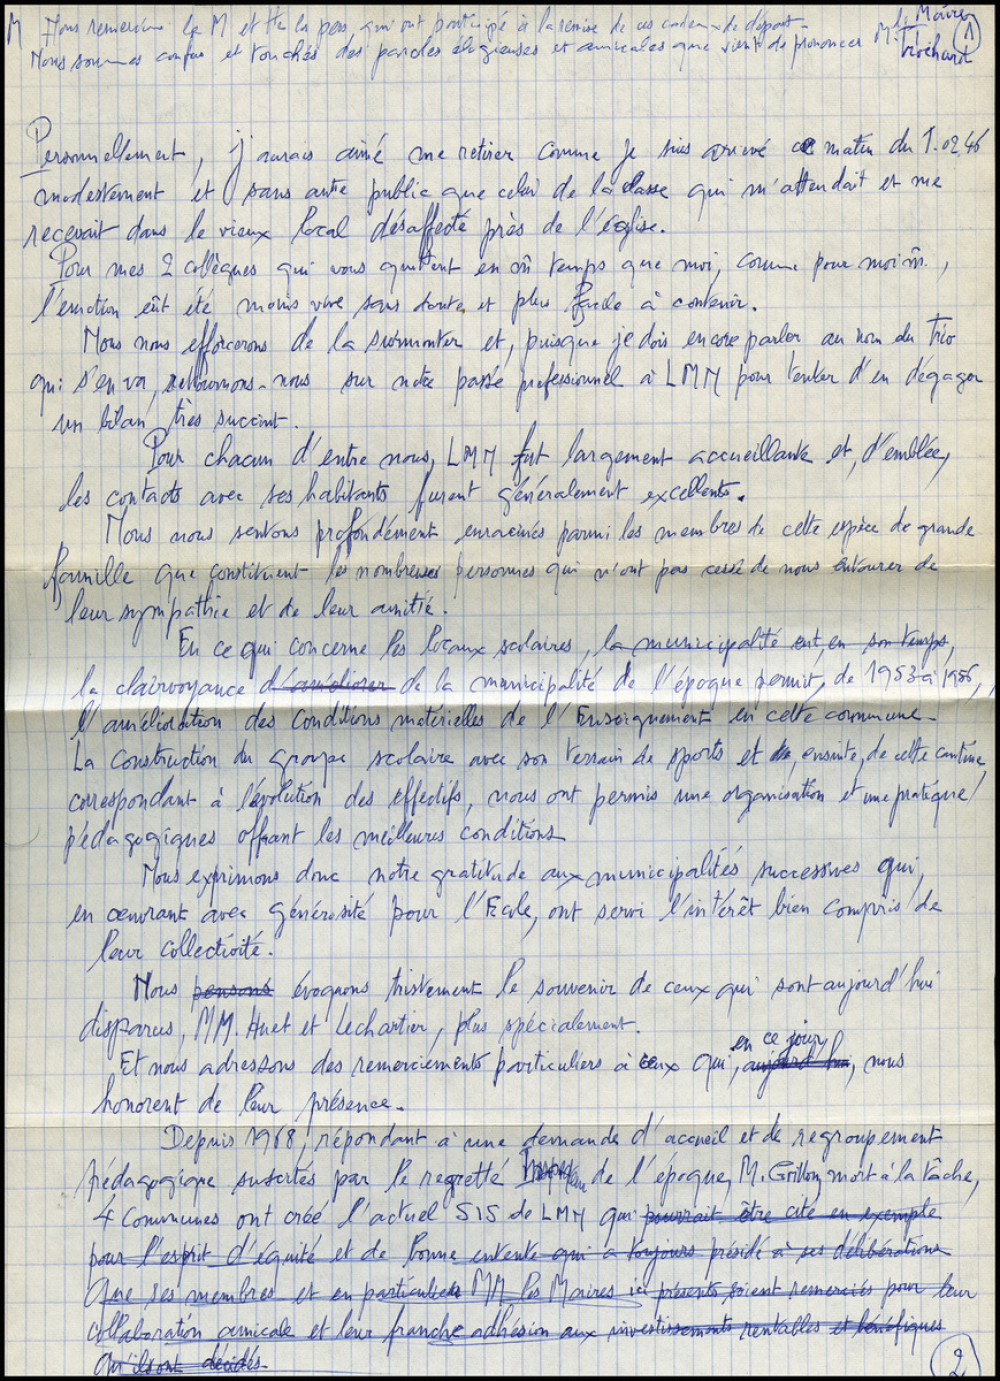 M Nous remercions le M et tte les pers. qui ont participé à la remise de ces cadeaux de départ.
Nous sommes confus et touchés des paroles élogieuses et amicales que vient de prononcer M. le Maire
1
Personnellement, j'aurais aimé me retirer comme je suis arrivé ce matin du 1.02.46
modestement et sans autre public que celui de la classe qui m'attendait et me
recevait dans le vieux local désaffecté près de l'église.
Pour mes 2 collègues qui vous quittent en m̂ temps que moi, comme pour moi m̂,
l'émotion eût été moins vive sans doute et plus facile à contenir.
Nous nous efforcerons de la surmonter et, puisque je dois encore parler au nom du trio
qui s'en va, retournons-nous sur notre passé professionnel à LMM pour tenter d'en dégager
un bilan très succint.
Pour chacun d'entre nous, LMM fut largement accueillante et, d'emblée,
les contacts avec ses habitants furent généralement excellents.
Nous nous sentons profondément enracinés parmi les membres de cette espèce de grande
famille que constituent les nombreuses personnes qui n'ont pas cessé de nous entourer de
leur sympathie et de leur amitié.
En ce qui concerne les locaux scolaires, la municipalité eut, en son temps,
la clairvoyance d'améliorer de la municipalité de l'époque permit, de 1953 à 1956,
l'amélioration des conditions matérielles de l'Enseignement en cette commune.
La construction du groupe scolaire avec son terrain de sports et, ensuite, de cette cantine,
correspondant à l'évolution des effectifs, nous ont permis une organisation et une pratique
pédagogiques offrant les meilleures conditions
Nous exprimons donc notre gratitude aux municipalités successives qui,
en œuvrant avec générosité pour l'École, ont servi l'intérêt bien compris de
leur collectivité.
Nous pensons évoquons tristement le souvenir de ceux qui sont aujourd'hui
disparus, MM. Huet et Lechartier, plus spécialement.
en ce jour
Et nous adressons des remerciements particuliers à ceux qui, aujourd'hui, nous
honorent de leur présence.
Depuis 1968, répondant à une demande d'accueil et de regroupement
pédagogique suscités par le regretté de l'époque, M. Grillon, mort à la tâche,
4 Communes ont créé l'actuel SIS de LMM qui pourrait être cité en exemple
pour l'esprit d'équité et de bonne entente qui a toujours présidé à ses délibérations
Que ses membres et en particulier MM les Maires ici présents soient remerciés pour leur
collaboration amicale et leur franche adhésion aux investissements rentables et bénéfiques
qu'ils ont décidés.
2